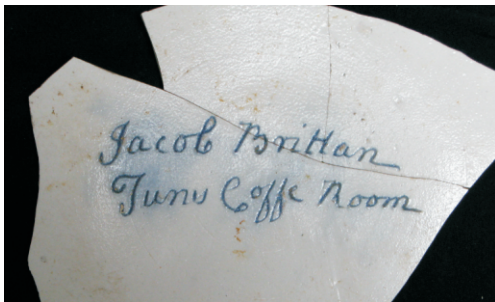 Jacob Brittan
Tuns Coffe Room